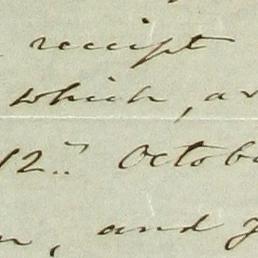 receipt
which, a
12" Octob
, and